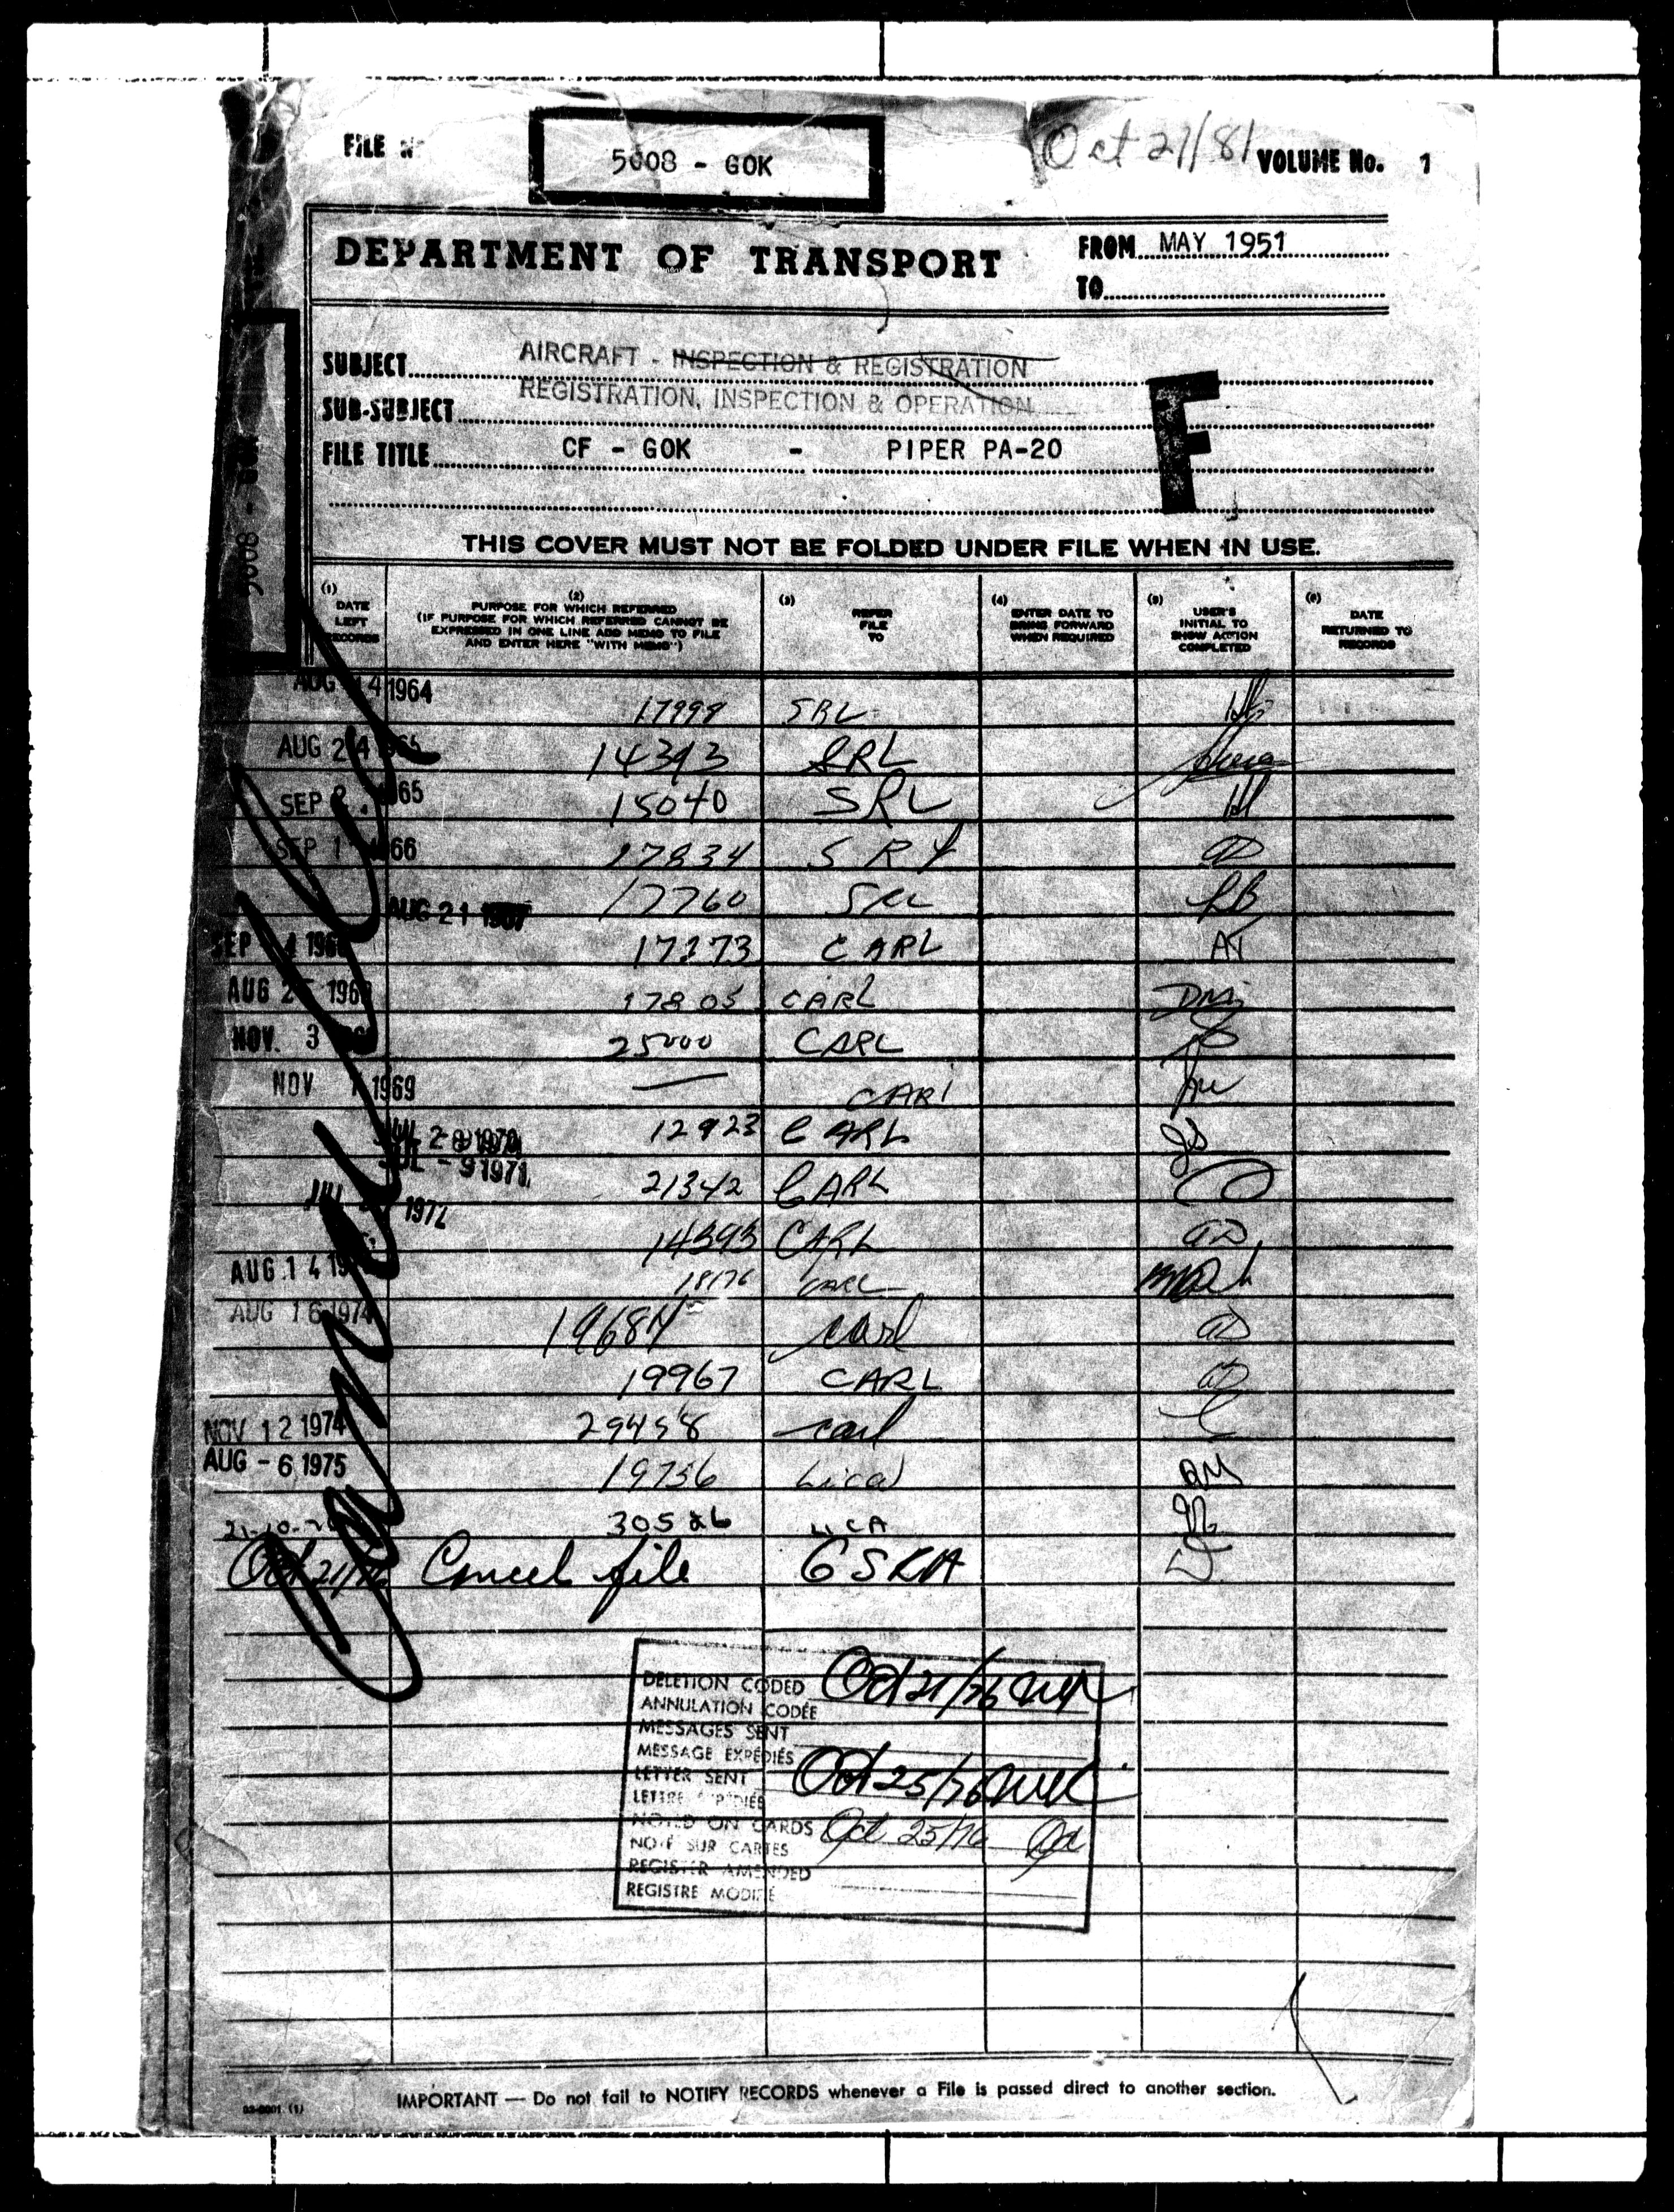 FILE No Oct 21/81 VOLUME No. 1
5008 - GOK
DEPARTMENT OF TRANSPORT
FROM MAY 1951
TO
SUBJECT AIRCRAFT - INSPECTION & REGISTRATION
SUB-SUBJECT REGISTRATION, INSPECTION & OPERATION
FILE TITLE CF - GOK - PIPER PA-20
F
5008 - GOK
THIS COVER MUST NOT BE FOLDED UNDER FILE WHEN IN USE.
(1) DATE LEFT RECORDS
(2) PURPOSE FOR WHICH REFERRED (IF PURPOSE FOR WHICH REFERRED CANNOT BE EXPRESSED IN ONE LINE ADD MEMO TO FILE AND ENTER HERE "WITH MEMO")
(3) REFER FILE TO
(4) ENTER DATE TO BRING FORWARD WHEN REQUIRED
(5) USER'S INITIAL TO SHOW ACTION COMPLETED
(6) DATE RETURNED TO RECORDS
AUG 14 1964 17999 SRL
AUG 24 1965 14393 SRL
SEP 1965 15040 SRL
SEP 1966 27834 SRL
AUG 21 1967 17760 SRL PB
SEP 17273 CARL AT
AUG 196 17805 CARL
NOV. 3 25000 CARL
NOV 1969 — CARL
JUL 28 1970 12923 CARL
JUL - 9 1971 21342 CARL
JUL 1972 14393 CARL
AUG 14 19 18176 CARL
AUG 16 1974 19684 Carl
19967 CARL
NOV 12 1974 29458 Carl
AUG - 6 1975 19736 Lica
21-10-76 30526 LICA
Oct 21/76 Cancel file
Cancelled
DELETION CODED Oct 21/76
ANNULATION CODÉE
MESSAGES SENT
MESSAGE EXPÉDIÉS
LETTER SENT Oct 25/76
LETTRE EXPÉDIÉE
NOTED ON CARDS Oct 25/76
NOTÉ SUR CARTES
REGISTER AMENDED
REGISTRE MODIFIÉ
IMPORTANT — Do not fail to NOTIFY RECORDS whenever a File is passed direct to another section.
03-0001 (1)